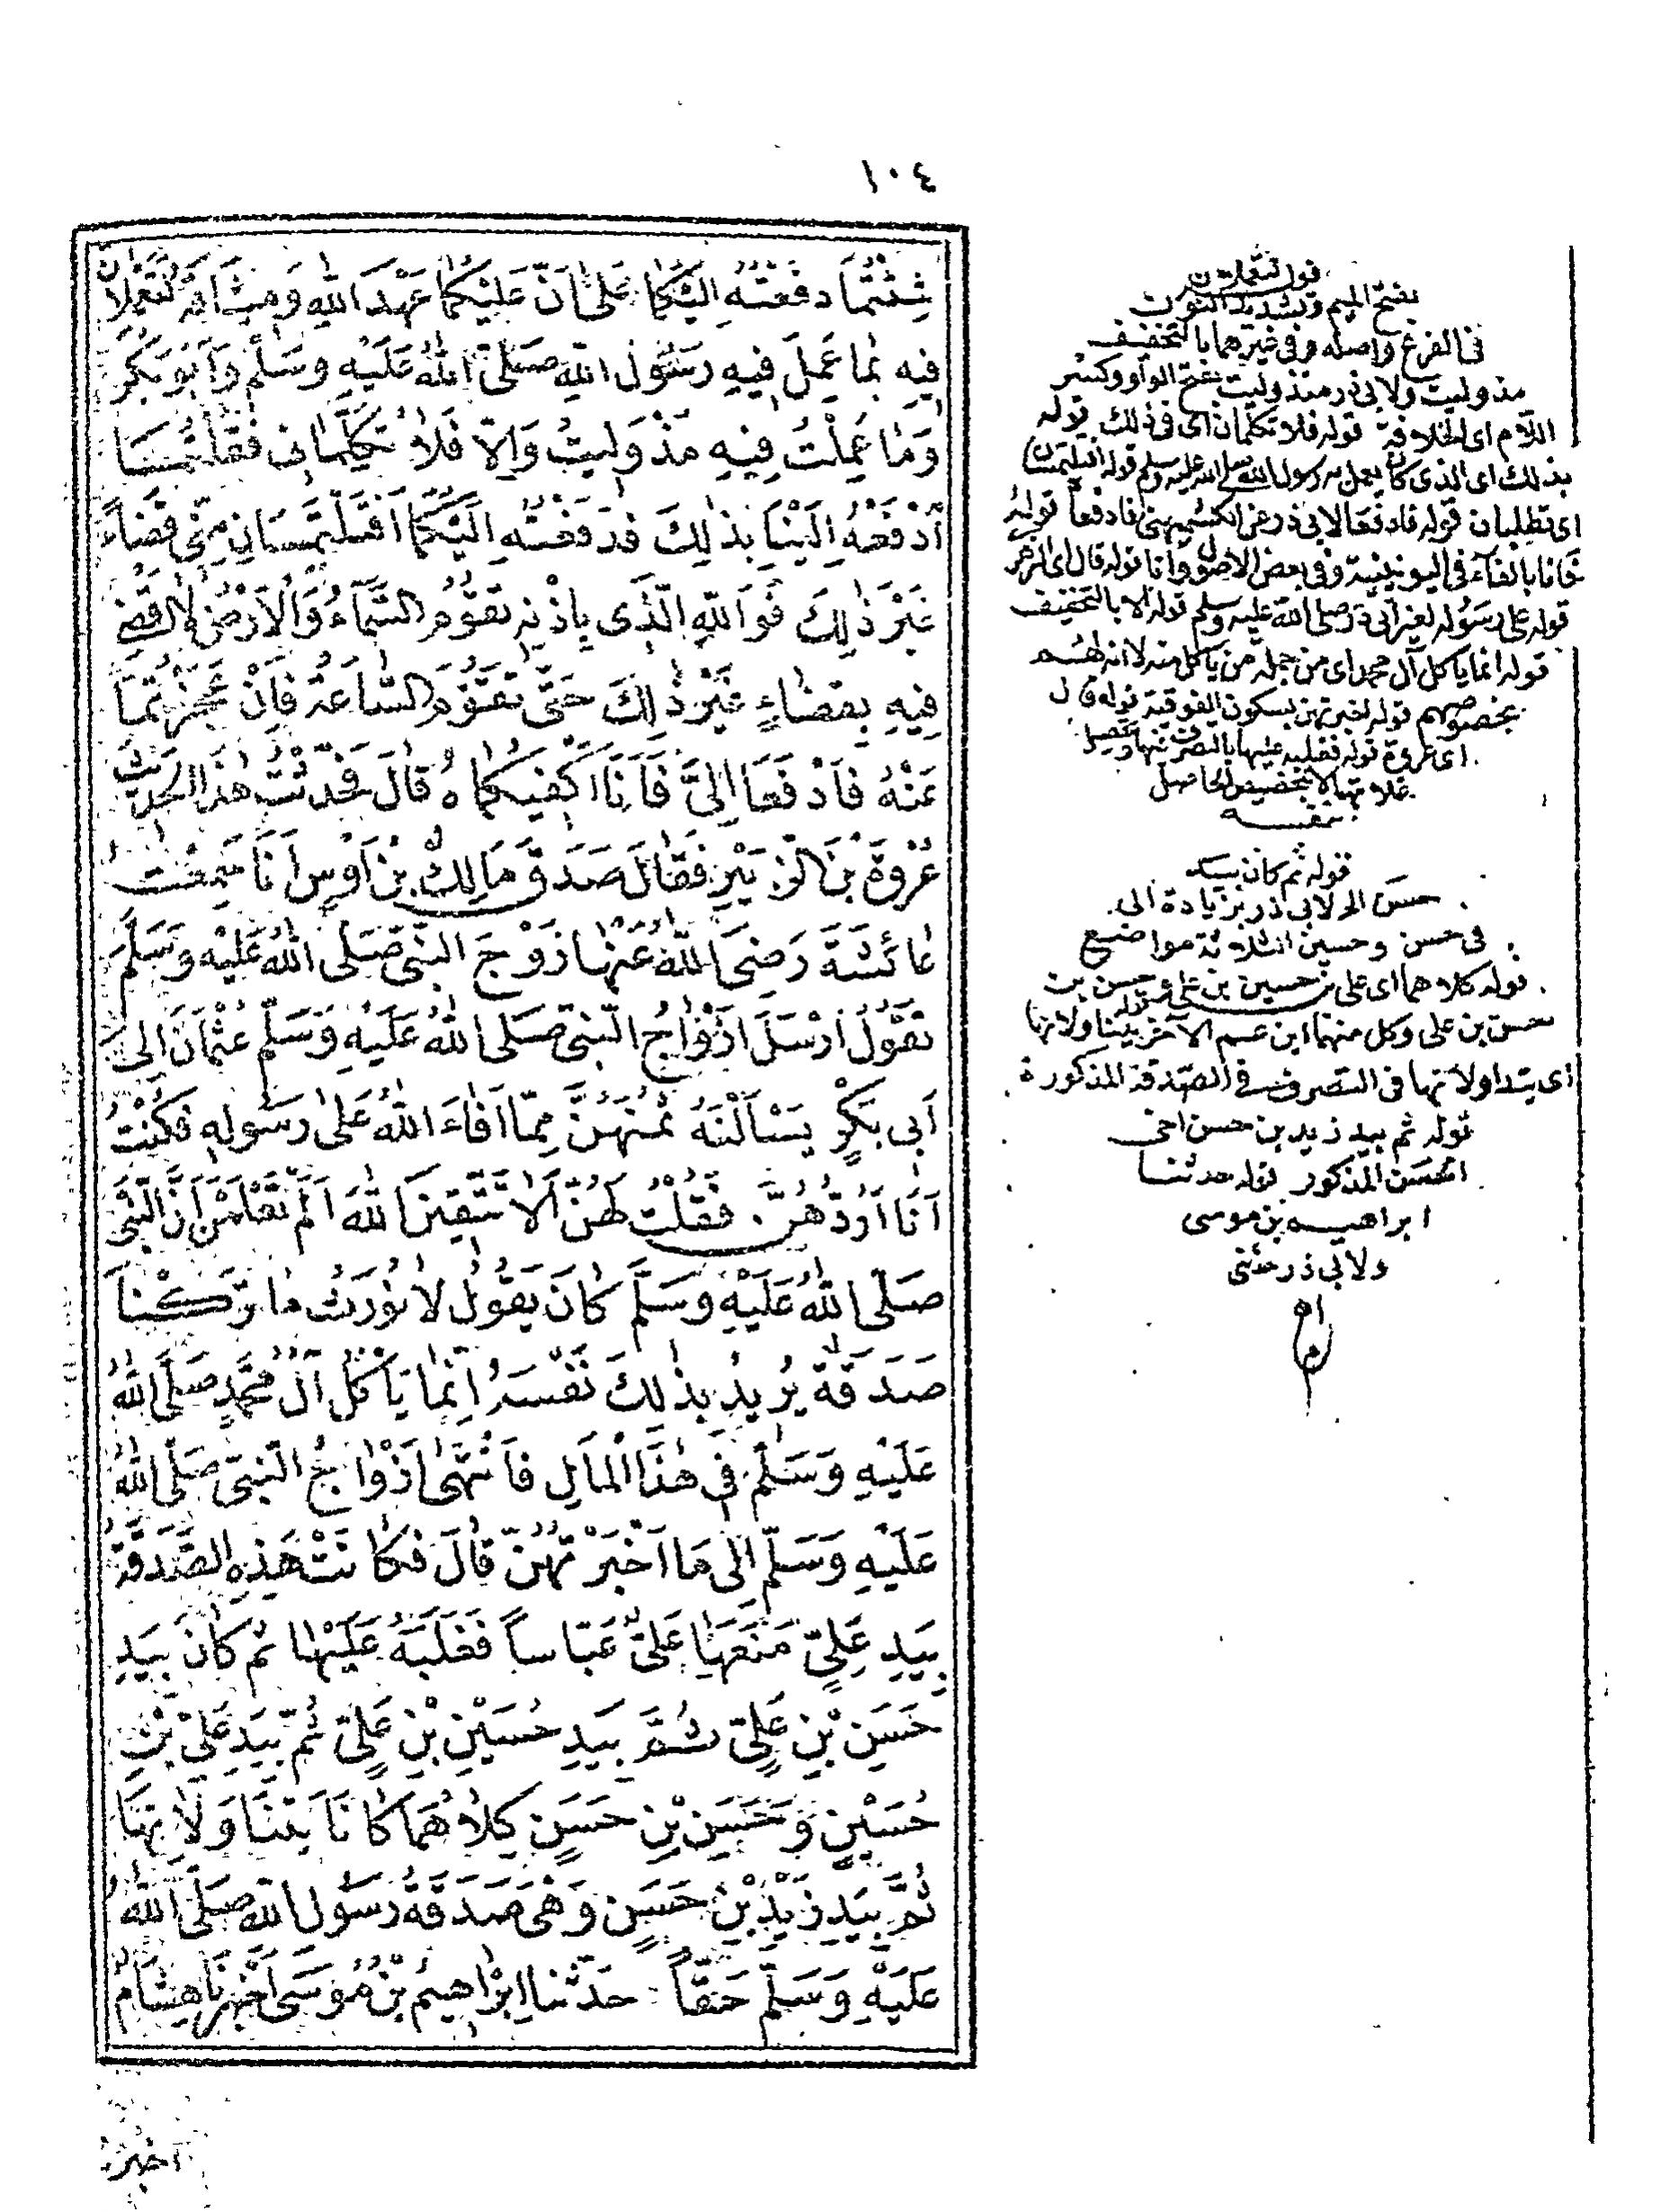 ١٠٤
شِئْتُمَا دَفَعْتُهُ إِلَيْكُمَا عَلَى أَنَّ عَلَيْكُمَا عَهْدَ اللهِ وَمِيثَاقَهُ لَتَعْمَلَانِّ
فِيهِ بِمَا عَمِلَ فِيهِ رَسُولُ اللهِ صَلَّى اللهُ عَلَيْهِ وَسَلَّمَ وَأَبُو بَكْرٍ
وَمَا عَمِلْتُ فِيهِ مُذْ وَلِيتُ وَإِلَّا فَلَا تُكَلِّمَانِي فَقُلْتُمَا
ادْفَعْهُ إِلَيْنَا بِذَلِكَ فَدَفَعْتُهُ إِلَيْكُمَا أَفَتَلْتَمِسَانِ مِنِّي قَضَاءً
غَيْرَ ذَلِكَ فَوَاللهِ الَّذِي بِإِذْنِهِ تَقُومُ السَّمَاءُ وَالْأَرْضُ لَا أَقْضِي
فِيهِ بِقَضَاءٍ غَيْرِ ذَلِكَ حَتَّى تَقُومَ السَّاعَةُ فَإِنْ عَجَزْتُمَا
عَنْهُ فَادْفَعَا إِلَيَّ فَأَنَا أَكْفِيكُمَاهُ قَالَ فَحَدَّثْتُ هَذَا الْحَدِيثَ
عُرْوَةَ بْنَ الزُّبَيْرِ فَقَالَ صَدَقَ مَالِكُ بْنُ أَوْسٍ أَنَا سَمِعْتُ
عَائِشَةَ رَضِيَ اللهُ عَنْهَا زَوْجَ النَّبِيِّ صَلَّى اللهُ عَلَيْهِ وَسَلَّمَ
تَقُولُ أَرْسَلَ أَزْوَاجُ النَّبِيِّ صَلَّى اللهُ عَلَيْهِ وَسَلَّمَ عُثْمَانَ إِلَى
أَبِي بَكْرٍ يَسْأَلْنَهُ ثُمُنَهُنَّ مِمَّا أَفَاءَ اللهُ عَلَى رَسُولِهِ فَكُنْتُ
أَنَا أَرُدُّهُنَّ فَقُلْتُ لَهُنَّ أَلَا تَتَّقِينَ اللهَ أَلَمْ تَعْلَمْنَ أَنَّ النَّبِيَّ
صَلَّى اللهُ عَلَيْهِ وَسَلَّمَ كَانَ يَقُولُ لَا نُورَثُ مَا تَرَكْنَا
صَدَقَةٌ يُرِيدُ بِذَلِكَ نَفْسَهُ إِنَّمَا يَأْكُلُ آلُ مُحَمَّدٍ صَلَّى اللهُ
عَلَيْهِ وَسَلَّمَ فِي هَذَا الْمَالِ فَانْتَهَى أَزْوَاجُ النَّبِيِّ صَلَّى اللهُ
عَلَيْهِ وَسَلَّمَ إِلَى مَا أَخْبَرْتُهُنَّ قَالَ فَكَانَتْ هَذِهِ الصَّدَقَةُ
بِيَدِ عَلِيٍّ مَنَعَهَا عَلِيٌّ عَبَّاسًا فَغَلَبَهُ عَلَيْهَا ثُمَّ كَانَ بِيَدِ
حَسَنِ بْنِ عَلِيٍّ ثُمَّ بِيَدِ حُسَيْنِ بْنِ عَلِيٍّ ثُمَّ بِيَدِ عَلِيِّ بْنِ
حُسَيْنٍ وَحَسَنِ بْنِ حَسَنٍ كِلَاهُمَا كَانَا يَتَدَاوَلَانِهَا
ثُمَّ بِيَدِ زَيْدِ بْنِ حَسَنٍ وَهْيَ صَدَقَةُ رَسُولِ اللهِ صَلَّى اللهُ
عَلَيْهِ وَسَلَّمَ حَقًّا حَدَّثَنَا إِبْرَاهِيمُ بْنُ مُوسَى أَخْبَرَنَا هِشَامٌ
قوله لتعملان
بفتح الميم وتشديد النون
فى الفرع واصله وفى غيرهما بالتخفيف
مذ وليت ولابى ذر منذ وليت بفتح الواو وكسر
اللام اى الخلافة قوله فلا تكلمان اى فى ذلك قوله
بذلك اى الذى كان يعمل به رسول الله صلى الله عليه وسلم قوله افتلتمسان
اى تطلبان قوله فادفعا لابى ذر عن الكشميهنى فادفعا قوله
فانا بالفآء فى اليونينية وفى بعض الاصول وانا قوله قال اى الزهر
قوله على رسوله لغير ابى ذر صلى الله عليه وسلم قوله الا بالتخفيف
قوله انما ياكل آل محمد اى من جملة من ياكل منه لا انه لهم
بخصوصهم قوله اخبرتهن بسكون الفوقية قوله قال
اى عروة قوله فغلبه عليها بالتصرف فيها وتحصيل
غلاتها لا بتخصيص الحاصل
بنفسه
قوله ثم كان بيد
حسن الخ لابى ذر بزيادة الى
فى حسن وحسين الثلاثة مواضع
قوله كلاهما اى على بن حسين بن على وحسن بن
حسن بن على وكل منهما ابن عم الآخر قوله يتداولانها
اى يتداولانها فى التصرف فى الصدقة المذكورة
قوله ثم بيد زيد بن حسن اخى
الحسن المذكور قوله حدثنا
ابراهيم بن موسى
ولابى ذر حدثنى
اخبرنا